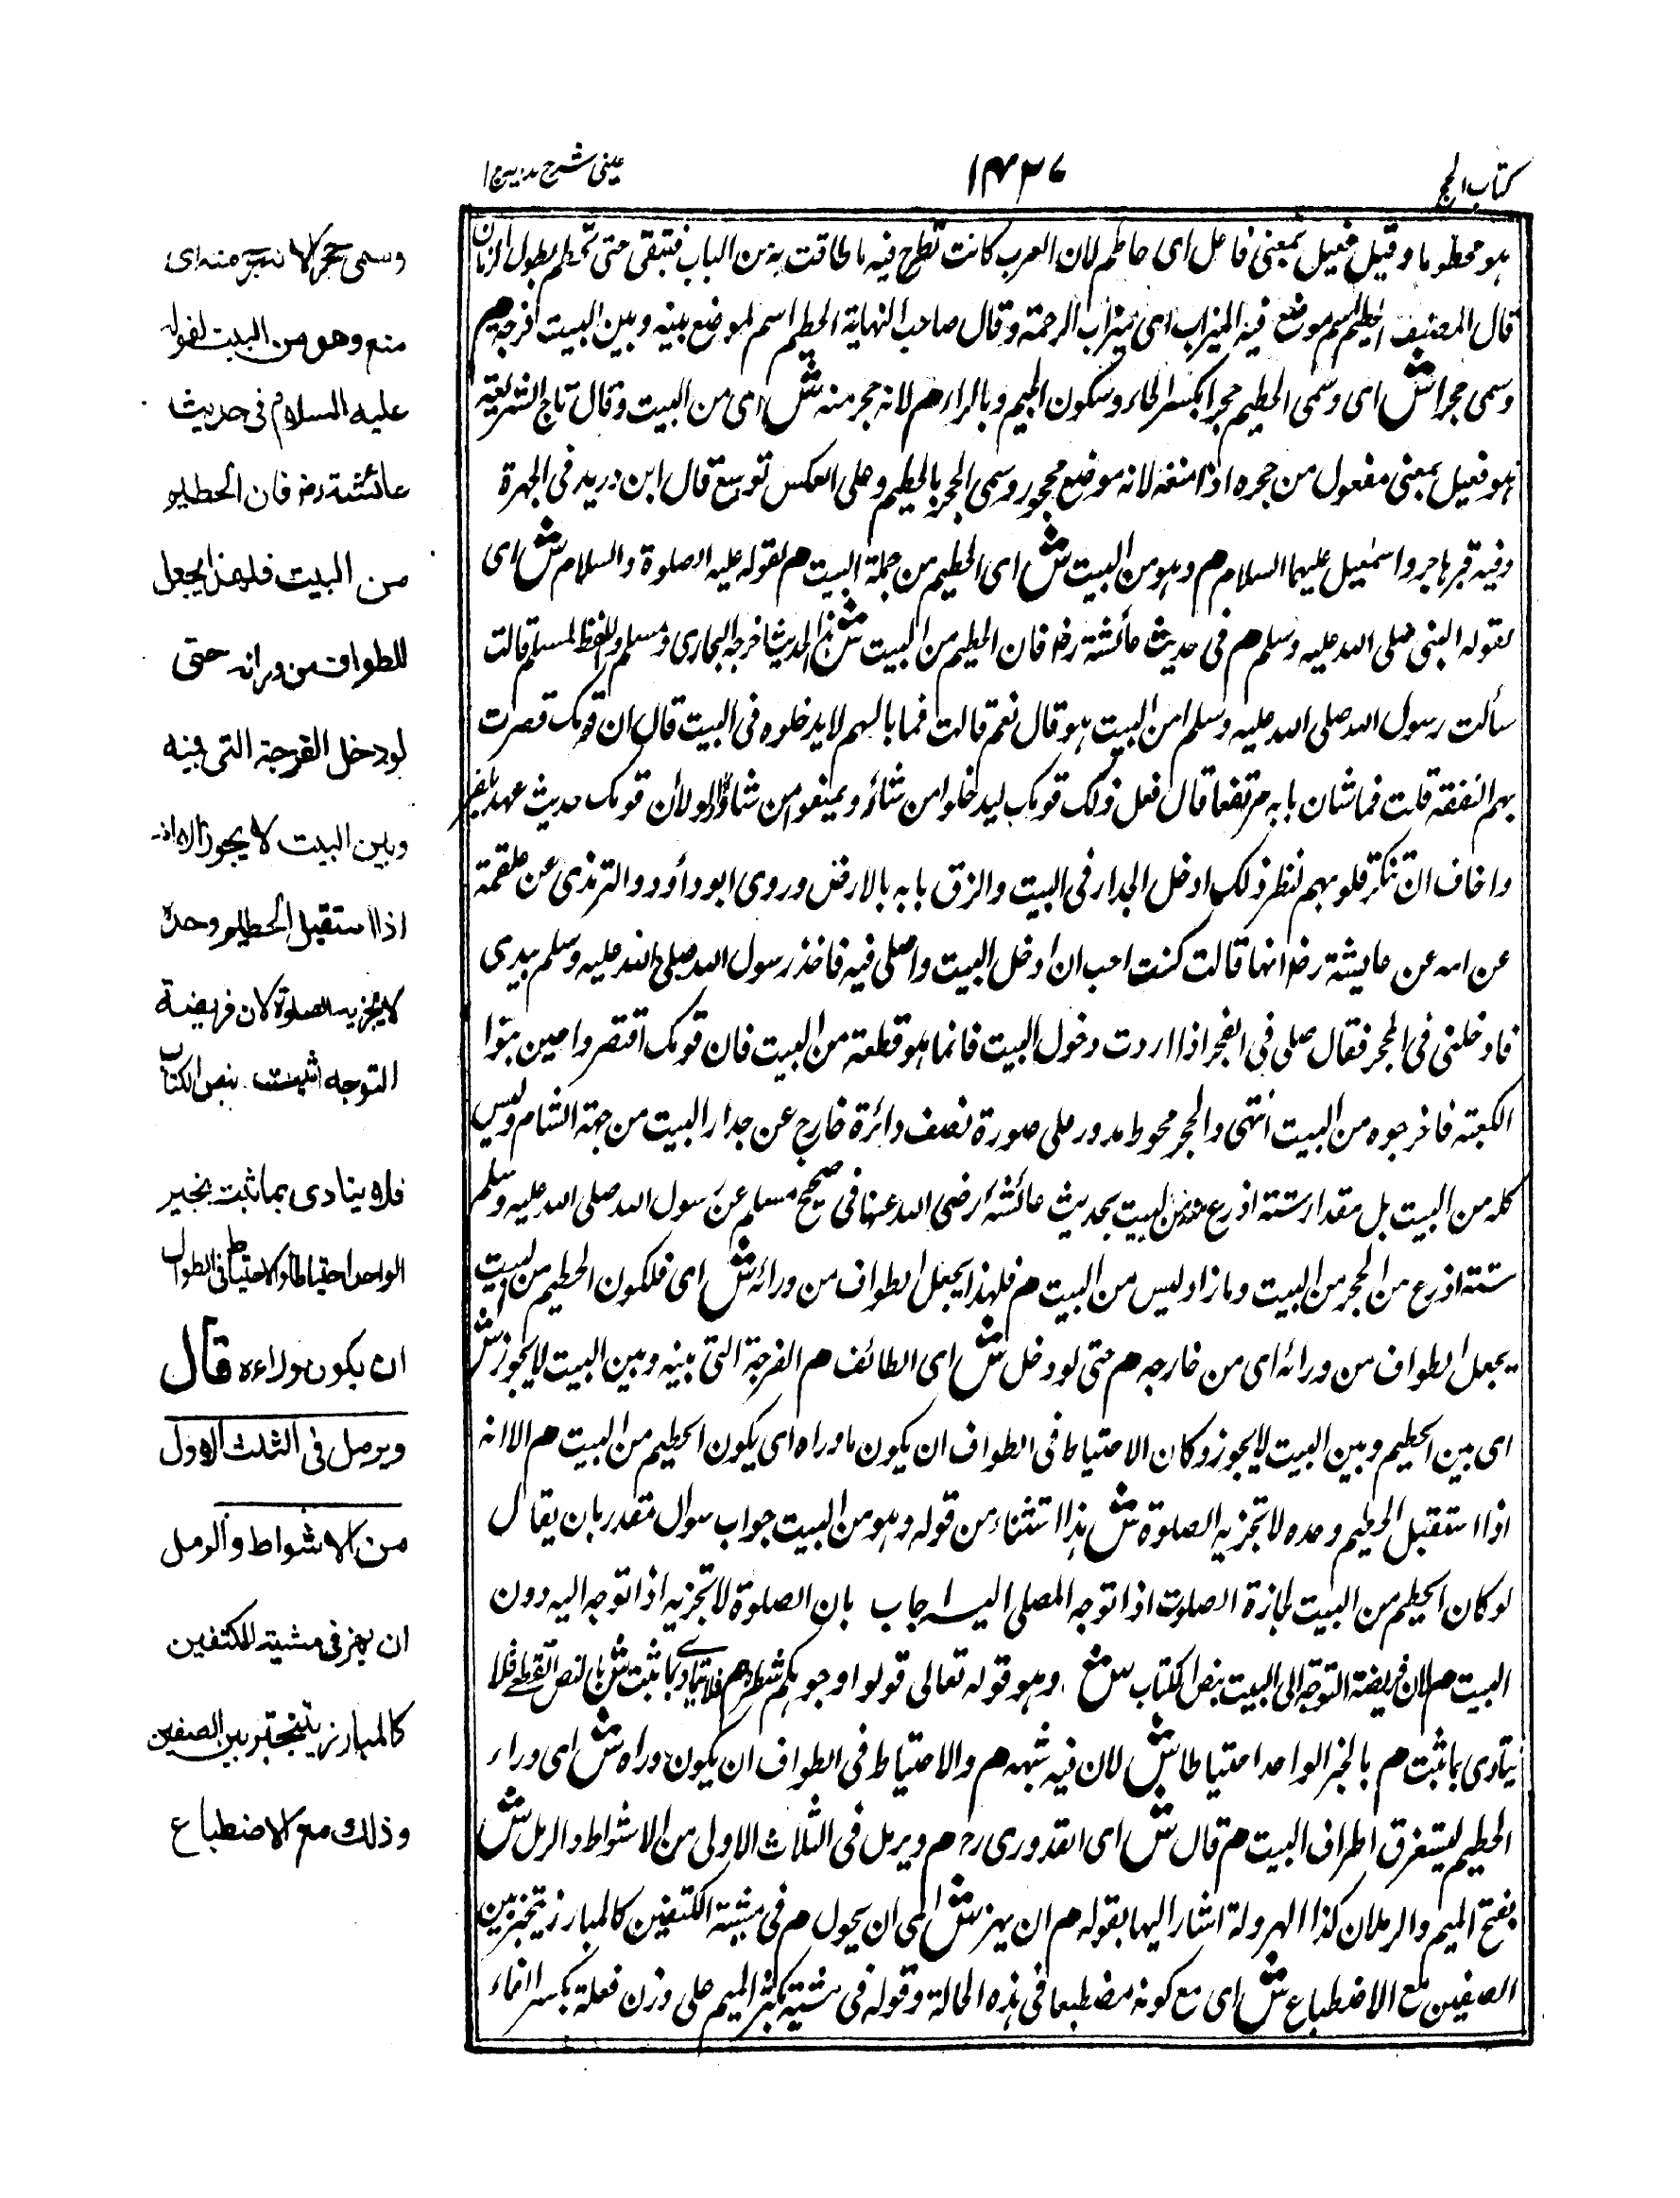 كتاب الحج
١٤٢٧
عينى شرح هدايه ج ١
هو محطوما وقيل فعيل بمعنى فاعل اى حاطم لان العرب كانت تطرح فيه ما طافت به من الثياب فتبقى حتى تحطم بطول الزمان
قال المصنف الحطيم اسم موضع فيه الميزاب اى ميزاب الرحمة وقال صاحب النهاية الحطيم اسم لموضع بينه وبين البيت فرجة م
وسمى حجرا ش اى وسمى الحطيم حجرا بكسر الحاء وسكون الجيم وبالراء م لانه حجر منه ش اى من البيت وقال تاج الشريعة
هو فعيل بمعنى مفعول من حجره اذا منعه لانه موضع محجور وسمى الحجر بالحطيم وعلى العكس توسع قال ابن دريد فى الجمهرة
وفيه قبر هاجر واسمعيل عليهما السلام م وهو من البيت ش اى الحطيم من جملة البيت م لقوله عليه الصلوة والسلام ش اى
لقوله النبى صلى الله عليه وسلم م فى حديث عائشة رض فان الحطيم من البيت ش هذا الحديث اخرجه البخارى ومسلم واللفظ لمسلم قالت
سألت رسول الله صلى الله عليه وسلم امن البيت هو قال نعم قالت فما بالهم لا يدخلوه فى البيت قال ان قومك قصرت
بهم النفقة قلت فما شان بابه مرتفعا قال فعل ذلك قومك ليدخلوا من شاؤ ويمنعوا من شاؤا ولولا أن قومك حديث عهد بكفر
واخاف ان تنكر قلوبهم لنظر ذلك ادخل الجدار فى البيت والزق بابه بالارض وروى ابو داود والترمذى عن علقمة
عن امه عن عايشة رض انها قالت كنت احب ان ادخل البيت واصلى فيه فاخذ رسول الله صلى الله عليه وسلم بيدى
فادخلنى فى الحجر فقال صلى فى الحجر اذا اردت دخول البيت فانما هو قطعة من البيت فان قومك اقتصروا حين بنوا
الكعبة فاخرجوه من البيت انتهى والحجر محوط مدور على صورة نصف دائرة خارج عن جدار البيت من جهة الشام وليس
كله من البيت بل مقدار ستة اذرع منه من البيت بحديث عائشة رضى الله عنها فى صحيح مسلم عن رسول الله صلى الله عليه وسلم
ستة اذرع من الحجر من البيت وما زاد ليس من البيت م فلهذا يجعل الطواف من ورائه ش اى فلكون الحطيم من البيت
يجعل الطواف من ورائه اى من خارجه م حتى لو دخل ش اى الطائف م الفرجة التى بينه وبين البيت لا يجوز ش
اى بين الحطيم وبين البيت لا يجوز وكان الاحتياط فى الطواف ان يكون ما وراه اى يكون الحطيم من البيت م الا انه
اذا استقبل الحطيم وحده لا تجزيه الصلوة ش هذا استثناء من قوله وهو من البيت جواب سوال مقدر بان يقال
لو كان الحطيم من البيت لجازة الصلوت اذا توجه المصلى اليه اجاب بان الصلوة لا تجزيه اذا توجه اليه دون
البيت م لان فريضة التوجه الى البيت بنص الكتاب ش وهو قوله تعالى فولوا وجوهكم شطره م فلا يتادى بما ثبت ش بالنص القطعى فلا
يتادى بما ثبت م بالخبر الواحد احتياطا ش لان فيه شبهه م والاحتياط فى الطواف ان يكون وراه ش اى وراء
الحطيم ليستغرق اطراف البيت م قال ش اى القدورى رح م ويرمل فى الثلاث الاولى من الاشواط والرمل ش
بفتح الميم والرملان كذا الهرولة اشار اليها بقوله م ان يهز ش اى ان يحول م فى مشيته الكتفين كالمبارز يتبختر بين
الصفين مع الاضطباع ش اى مع كونه مضطبعا فى هذه الحالة وقوله فى مشيته بكسر الميم على وزن فعلة بكسر الفاء
وسمى حجرا لانه حجر منه اى
منع وهو من البيت لقوله
عليه السلام فى حديث
عائشة رض فان الحطيم
من البيت فلهذا يجعل
للطواف من ورائه حتى
لو دخل الفرجة التى بينه
وبين البيت لا يجوز الا انه
اذا استقبل الحطيم وحده
لا يجزيه الصلوة لان فريضة
التوجه ثبتت بنص الكتاب
فلا يتادى بما ثبت بخبر
الواحد احتياطا والاحتياط فى الطواف
ان يكون وراءه قال
ويرمل فى الثلث الاول
من الاشواط والرمل
ان يهز فى مشيته الكتفين
كالمبارز يتبختر بين الصفين
وذلك مع الاضطباع